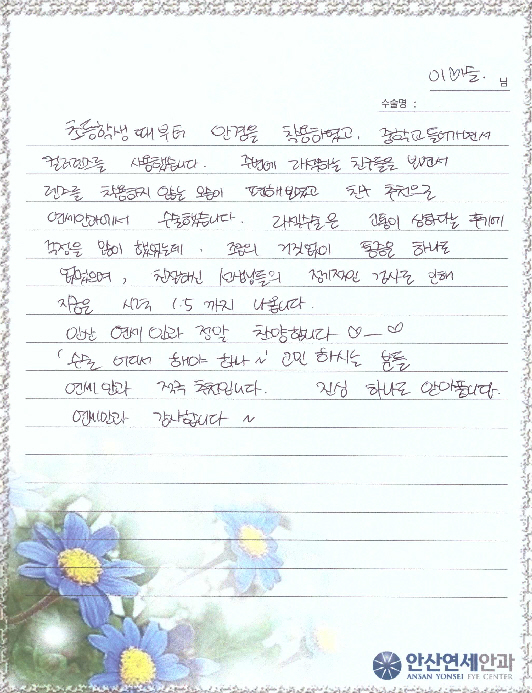 이♡슬. 님
수술명 :
초등학생 때부터 안경을 착용하였고, 중학교 들어가면서
컬러렌즈를 사용했습니다. 주변에 라섹하는 친구들을 보면서
렌즈를 착용하지 않는 모습이 편해보였고 친구 추천으로
연세안과에서 수술했습니다. 라섹수술은 고통이 심하다는 후기에
걱정을 많이 했었는데, 조금의 거짓없이 통증은 하나도
없었으며, 친절하신 선생님들의 정기적인 검사로 인해
지금은 시력 1.5 까지 나옵니다.
안산 연세 안과 정말 찬양합니다 ♡-♡
「수술 어디서 해야 하나~」 고민 하시는 분들
연세 안과 적극 추천입니다. 진심 하나도 안아픕니다.
연세안과 감사합니다 ~
안산연세안과
ANSAN YONSEI EYE CENTER